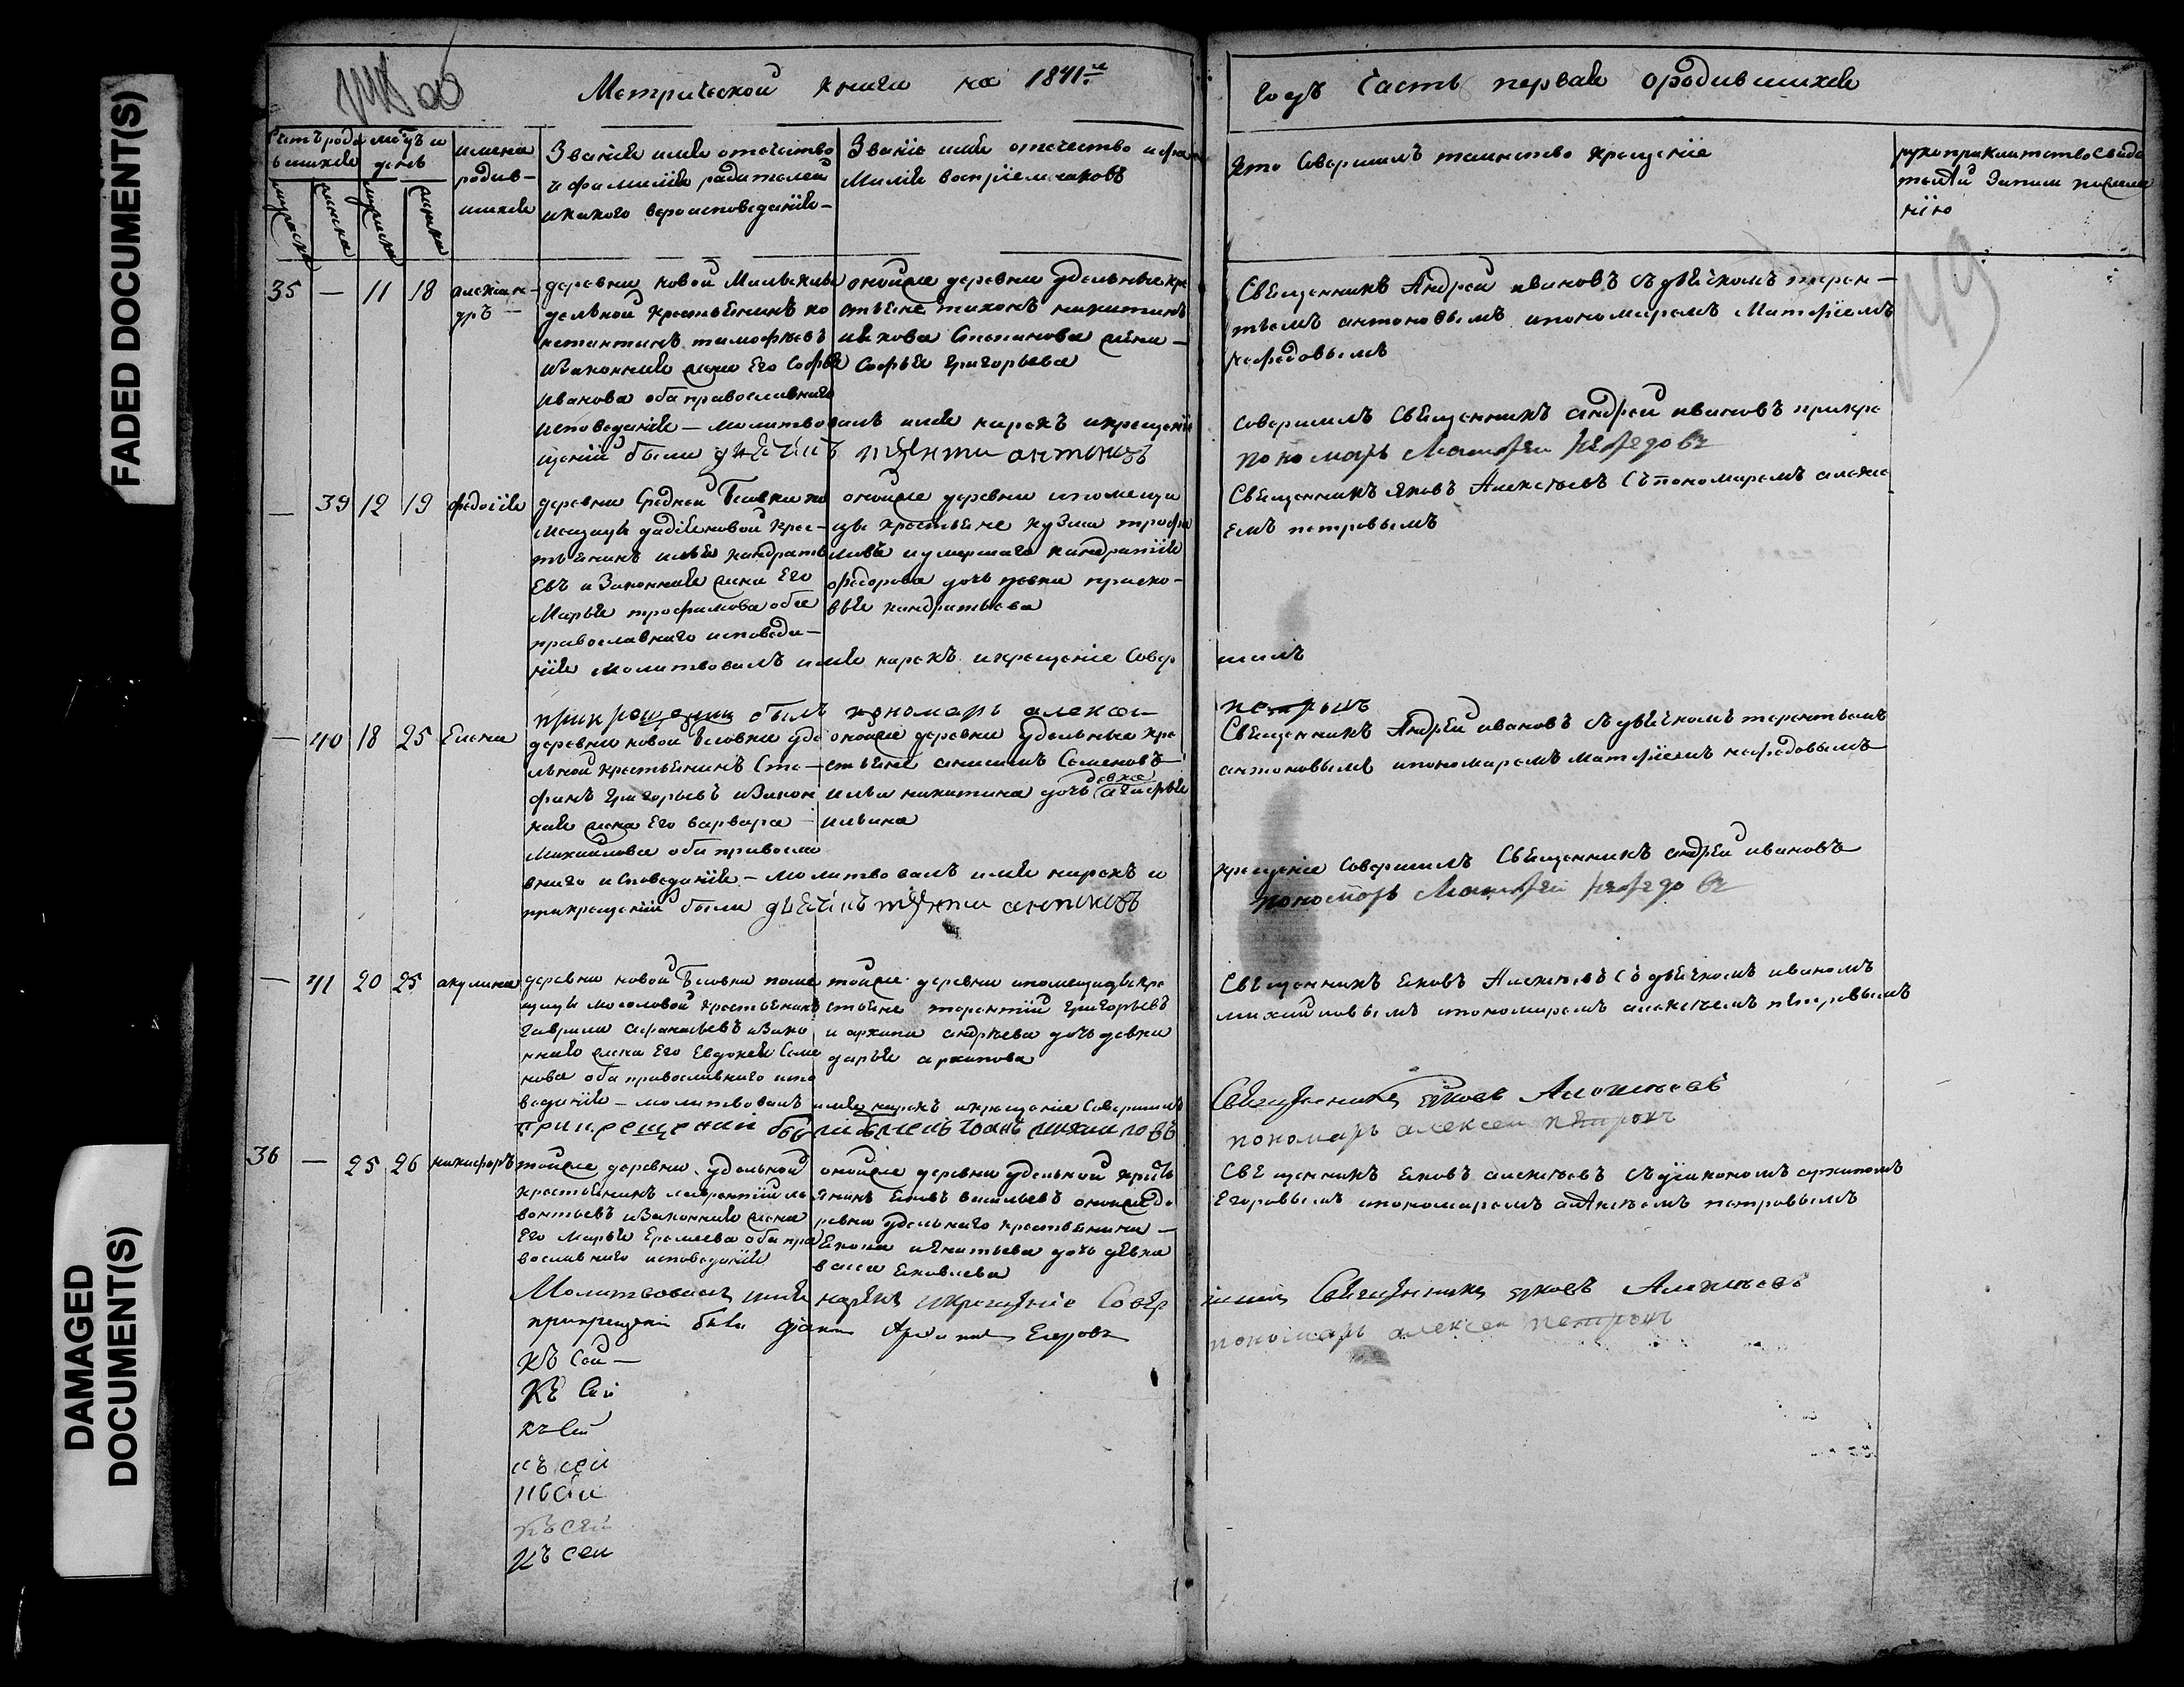 FADED DOCUMENT(S)
DAMAGED
DOCUMENT(S)
Метрической книги на 1841й
годъ Часть первая ородившихся
имена
родив-
шихся
Званiе имя отечество
и фамилiя родителей
икакого вероисповеданiя-
Званiе имя отечество ифа
милiя воспрiемниковъ
Кто Совершилъ таинство крещенiе
рукоприкл­атство Свиде
телей Записи пожела
нiю
149
35 — 11 18 алексан-
дръ
деревни новой
дельной крестьянинъ ко
нстантинъ тимофѣевъ
иЗаконная жена Его Софья
Иванова оба православнаго
исповеданiя — молитвовалъ имя нарекъ икрещенiе
щенiи были дьячикъ терентiи антоновъ
оноиже деревни удельные кре
стьяне тихонъ никитинъ
иякова Степанова жена —
Софья григорьева
Священникъ Андреи ивановъ съ дьячкомъ терен —
тьемъ антоновымъ ипономаремъ Матфiемъ
нефедовымъ
Совершилъ Священникъ андреи ивановъ прикре
пономарь Матфеи нефедовъ
— 39 12 19 федосiя
деревни Средней
мещицы крес-
тьянинъ илья кондрать
Евъ и Законная жена Его
Марья трофимова оба
православнаго исповеда —
нiя молитвовалъ имя нарекъ икрещенiе Совер
прикрещенiи былъ пономарь алексеи
оноиже деревни ипомещи
цы крестьяне кузма трофи
мовъ иумершаго кондратiя
федорова дочь девка праско-
вья кондратьева
Священникъ яковъ Алексѣевъ Съ пономаремъ алексе
емъ петровымъ
шилъ
петровъ
— 40 18 25 Елена
деревни новой уде
льной крестьянинъ Сте —
фанъ григорьевъ иЗакон
ная жена Его варвара —
Михайлова оба правосла
внаго исповеданiя — молитвовалъ имя нарекъ и
прикрещенiи были дьячикъ терентiи антоновъ
оноиже деревни удельные кре
стьяне анисимъ Семеновъ
ильи никитина дочь девка
ильина
Священникъ Андреи ивановъ съ дьячкомъ терентьемъ
антоновымъ ипономаремъ матфiемъ нефедовымъ
крещенiе Совершилъ Священникъ андреи ивановъ
пономарь Матфеи нефедовъ
— 41 20 25 акулина
деревни новой поме
щицы крестьянинъ
гаврила афанасьевъ иЗако
нная жена Его Евдокея Семе
нова оба православнаго испо
веданiя — молитвовалъ имя нарекъ икрещенiе Совершилъ
прикрещенiи были дьячекъ иванъ михаиловъ
тоиже деревни ипомещицы кре
стьяне терентiи григорьевъ
и архипа андрѣева дочь девка
дарья архипова
Священникъ яковъ Алексѣевъ Съ дьячкомъ иваномъ
михаиловымъ ипономаремъ алексѣемъ петровымъ
Священникъ яковъ Алексѣевъ
пономарь алексеи петровъ
36 — 25 26 никифоръ
тоиже деревни удельной
крестьянинъ лаврентiи ле
вонтьевъ иЗаконная жена
Его Марья Еремеева оба пра
вославнаго исповеданiя
Молитвовалъ имя нарекъ икрещенiе Совер
прикрещенiи были дiаконъ Архипъ Егоровъ
оноиже деревни удельной кресть
янинъ яковъ васильевъ оноиже де
ревни удельнаго крестьянина —
дочь девка
васса яковлева
Священникъ яковъ алексѣевъ съ дiакономъ архипомъ
Егоровымъ ипономаремъ алексѣемъ петровымъ
шилъ Священникъ яковъ Алексѣевъ
пономарь алексеи петровъ
Къ сей —
Къ сей
Къ сей
Къ сей
Къ сей
Къ сей
Къ сей